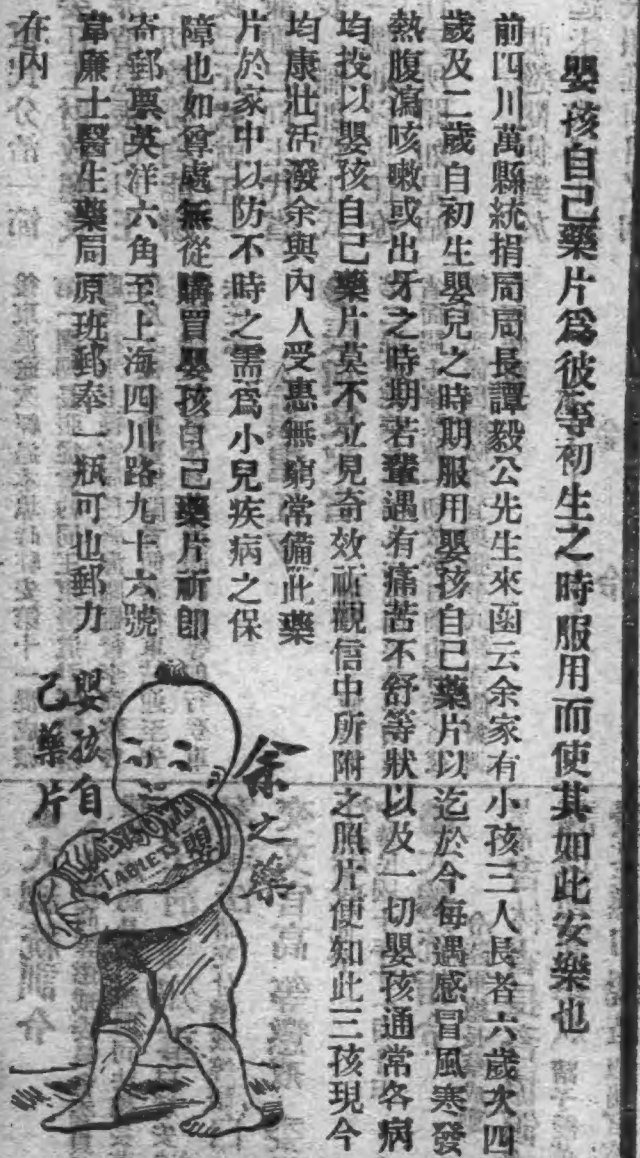 嬰孩自己藥片爲彼等初生之時服用而使其如此安樂也
前四川萬縣統捐局局長譚毅公先生來函云余家有小孩三人長者六歲次四
歲及二歲自初生嬰兒之時期服用嬰孩自己藥片以迄於今每遇感冒風寒發
熱腹瀉咳嗽或出牙之時期若輩遇有痛苦不舒等狀以及一切嬰孩通常各病
均投以嬰孩自己藥片莫不立見奇效祈觀信中所附之照片便知此三孩現今
均康壯活潑余與內人受惠無窮常備此藥
片於家中以防不時之需爲小兒疾病之保
障也如尊處無從購買嬰孩自己藥片祈卽
寄郵票英洋六角至上海四川路九十六號
韋廉士醫生藥局原班郵奉一瓶可也郵力
在內
余之藥
BABY'S OWN
TABLETS
嬰孩自
己藥片